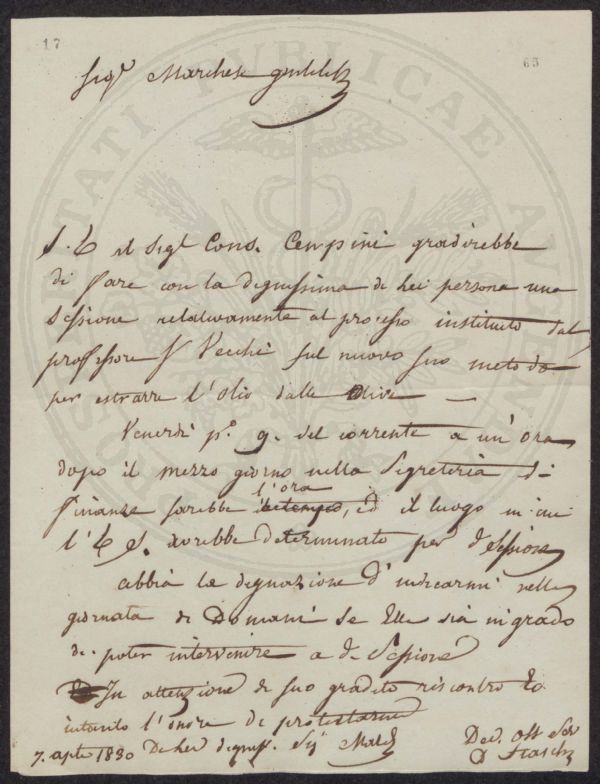 17
65
Sig.r Marchese gentiliss.
S. E il Sig.r Cons. Cempini gradirebbe
di fare con la degnissima di Lei persona una
Sessione relativamente al processo instituito dal
professore Vecchi sul nuovo suo metodo
per estrarre l'olio dalle olive —
Venerdì p.o 9. del corrente a un' ora
dopo il mezzo giorno nella Segreteria di
Finanze sarebbe l'ora, ed il luogo in cui
l'E S. avrebbe determinato per d.a Sessione
abbia la degnazione d'indicarmi nella
giornata di Domani se Ella sia in grado
di poter intervenire a d.a Sessione
In attenzione di suo gradito riscontro ho
intanto l'onore di protestarmi
7. aple 1830 De Lei degniss. Sig.r March
Dev. Obb Ser